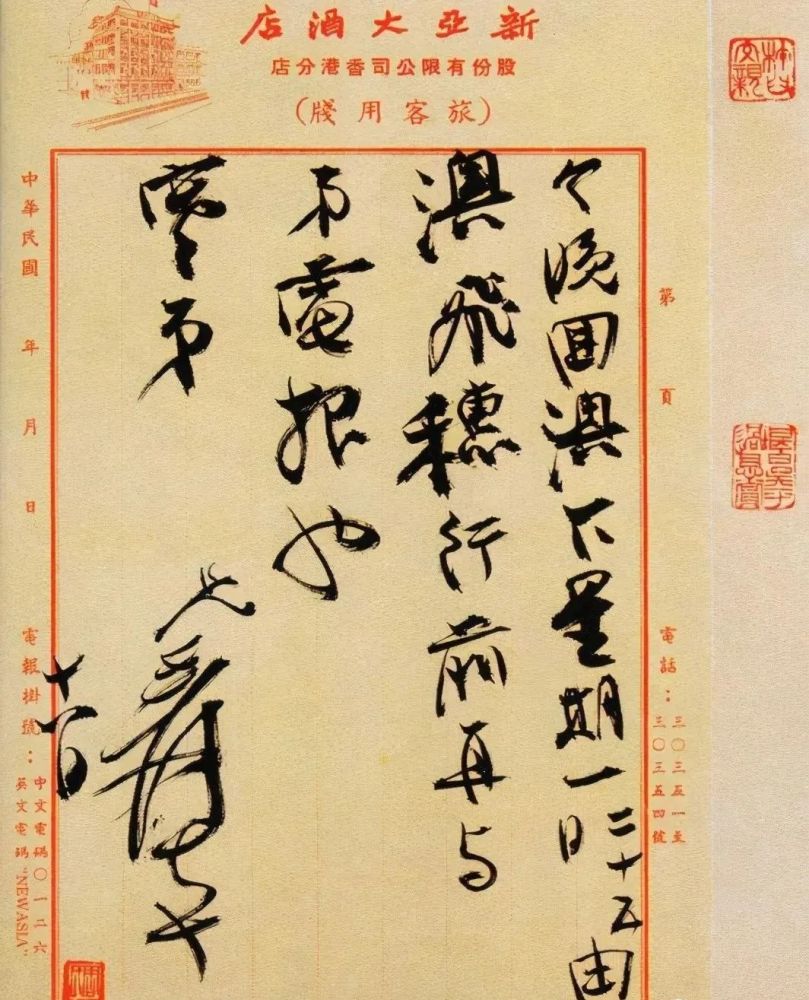 新亞大酒店
股份有限公司香港分店
(旅客用牋)
第 頁
電話：三〇三五一至
三〇三五四號
今晚囬澳下星期一二十五日由
澳飛穗行前再与
弟電報也
弟
兄爰
中華民國 年 月 日
電報掛號：中文電碼〇一二六
英文電碼"NEW ASIA"